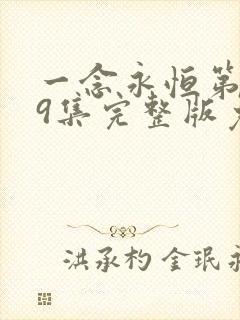 一念永恒第
9集完整版
洪承杓 金珉